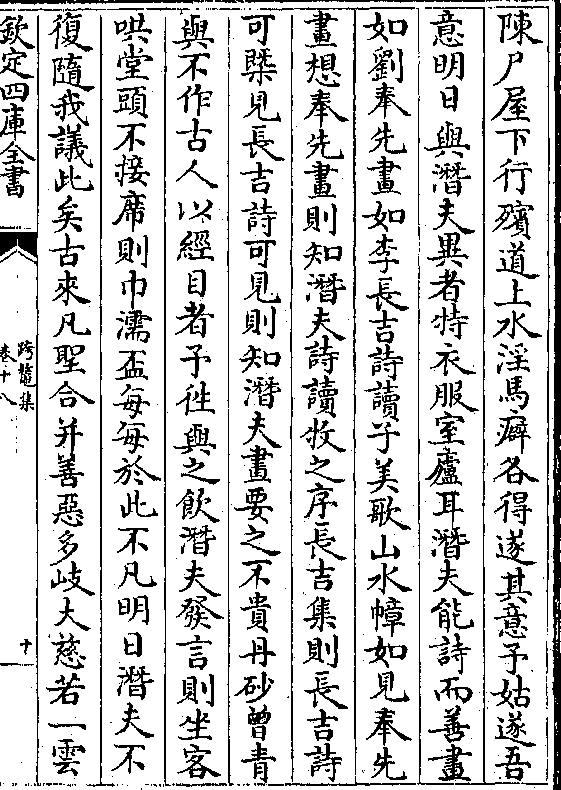 陳尸屋下行殯道上水淫馬癖各得遂其意予姑遂吾
意明日與潛夫異者特衣服室廬耳潛夫能詩而善畫
如劉奉先畫如李長吉詩讀子美歌山水幛如見奉先
畫想奉先畫則知潛夫詩讀牧之序長吉集則長吉詩
可槩見長吉詩可見則知潛夫畫要之不貴丹砂曾青
與不作古人以經目者予徃與之飲潛夫發言則坐客
哄堂頭不接席則巾濡盃每每於此不凡明日潛夫不
復隨我議此矣古來凡聖合并善惡多岐大慈若一雲
欽定四庫全書
跨鼇集
卷十八
十